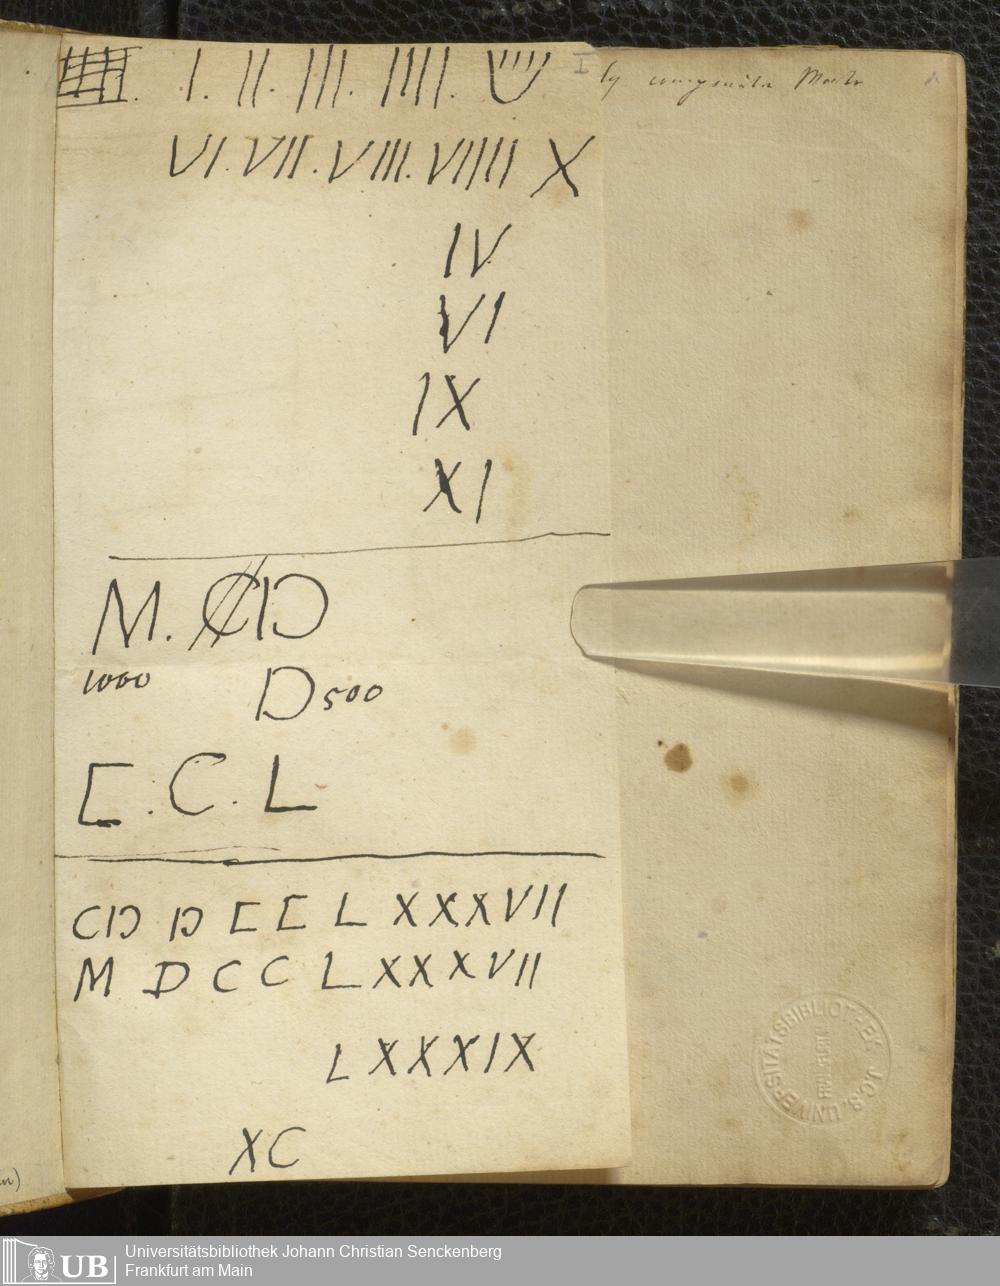 I. II. III. IIII. V I
ly composita
VI. VII. VIII. VIIII X
IV
VI
IX
XI
M. CIↃ
1000
D 500
C. C. L
CIↃ IↃ C C L X X X V I I
M D C C L X X X V I I
L X X X I X
XC
UNIVERSITÄTSBIBLIOTHEK J.C.S.
UB Universitätsbibliothek Johann Christian Senckenberg
Frankfurt am Main